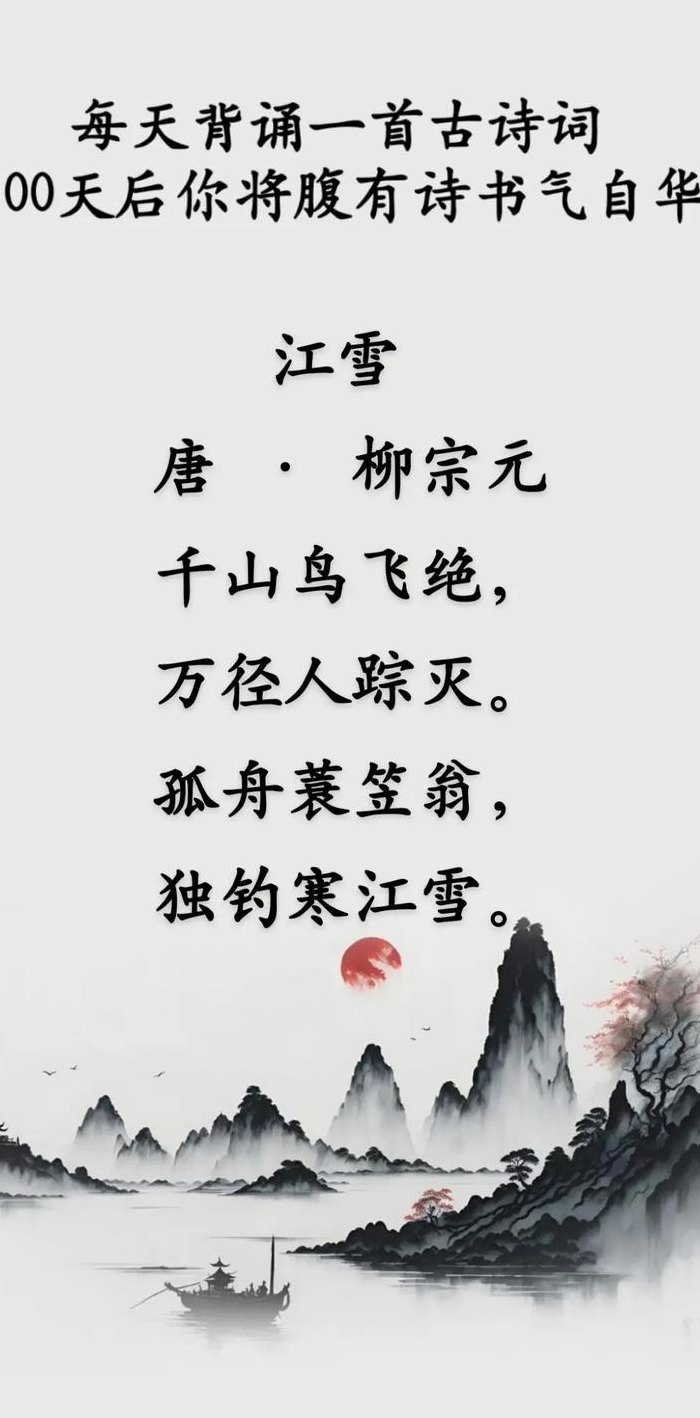 每天背诵一首古诗词
00天后你将腹有诗书气自华
江雪
唐 · 柳宗元
千山鸟飞绝，
万径人踪灭。
孤舟蓑笠翁，
独钓寒江雪。